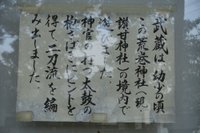 武蔵は、幼少の頃
この荒巻神社(現
讃甘神社)の境内で
遊んでました。
神官の打つ太鼓の
撥さばきにヒントを
得て、二刀流を編
み出しました。